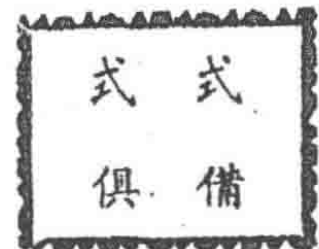 式式
俱備